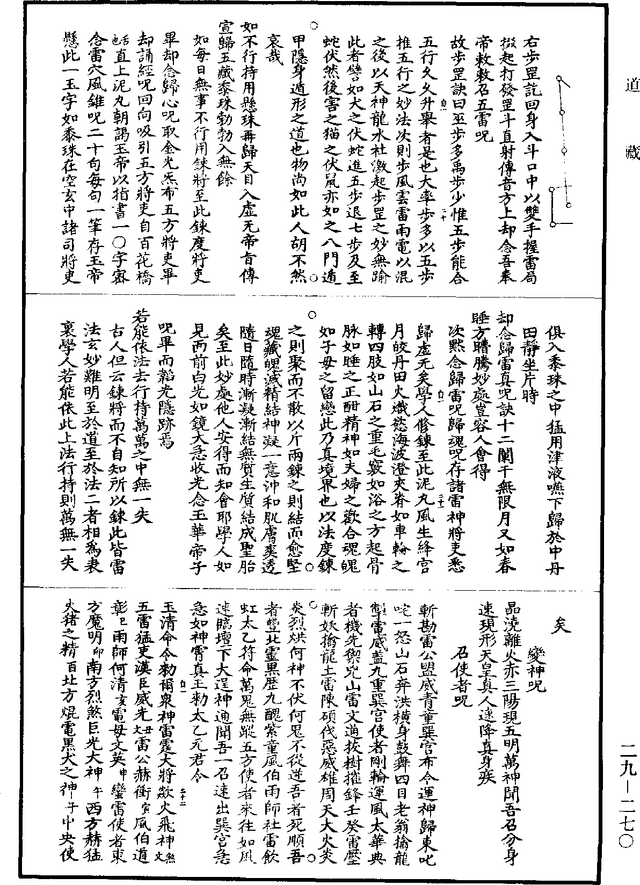 道藏
右步罡訖回身入斗口中以雙手握雷局
掇起打發罡斗直射傳音方上却念吾奉
帝敕敕召五雷呪
故步罡訣曰巫步多禹步少惟五步能合
五行久久升舉者是也大率步多以五步
推五行之妙法次則步風雲雷雨電以混
之後以天神龍水社激起步罡之妙無踰
此者譬如犬之伏蛇進五步退七步及至
蛇伏然後害之猫之伏鼠亦如之八門遁
甲隱身遁形之道也物尚如此人胡不然
哀哉
如不行持用懸珠再歸天目入虛无帝青傳
宣歸五藏黍珠勃勃入無餘
如每日無事不行用鍊將至此鍊度將吏
畢却念歸心呪取金光炁布五方將吏畢
却誦經呪回向吸引五方將吏自百花橋
直上泥丸朝謁玉帝以指書一〇字密
念雷穴風錐呪二十句每句一筆存玉帝
懸此一玉字如黍珠在空玄中諸司將吏
俱入黍珠之中猛用津液嚥下歸於中丹
田靜坐片時
却念歸雷真呪訣十二闌干無限月又如春
睡方瞢騰妙處豈容人會得
次黙念歸雷呪歸魂呪存諸雷神將吏悉
歸虛无矣學人修鍊至此泥丸風生絳宮
月皎丹田火熾慾海波澄夾脊如車輪之
轉四肢如山石之重毛竅如浴之方起骨
脉如睡之正酣精神如夫婦之歡合魂魄
如子母之留戀此乃真境界也以法度鍊
之則聚而不散以斤兩鍊之則結而愈堅
魂藏魄滅精結神凝一意沖和肌膚爽透
隨日隨時漸凝漸結無質生質結成聖胎
矣至此妙處他人安得而知會耶學人如
見两前白光如鏡大急收光念玉華帝子
呪畢而韜光隱跡焉
若能依法去行持萬萬之中無一失
古人但云鍊將而不自知所以鍊此皆雷
法玄妙難明至於道至於法二者相為表
裏學人若能依此上法行持則萬無一失
矣
變神呪
晶澆離火赤三陽現五明萬神聞吾召分身
速現形天皇真人速降真身疾
召使者呪
斬勘雷公盟威青童巽宮布令運神歸東叱
咤一怒山石莽洪橫身鼓舞四目老翁擒龍
掣雷威蓋九重巽宮使者剛輪運風太華典
者機先禦兇山雷文過拔樹摧鋒壬癸雷壓
斬妖擒龍土雷陳碩伐惡威雄周天大火炎
炎烈烘何神不伏何鬼不從逆吾者死順吾
者豐北靈黑歷九醜紫童風伯雨師社雷飲
虹太乙符命萬鬼無蹤五方使者來往如風
速臨壇下大逞神通聞吾一召速出巽宮急
急如神霄真王勅太乙元君令
玉清命令勅爾衆神雷霆大將歘火飛神
五雷猛吏漢臣威光雷公赫衝風伯道
彰雨師何清電母文英蠻雷使者東
方魔明南方烈煞巨光大神西方赫猛
火猪之精百北方焜電黑犬之神中央使
二九—二七〇